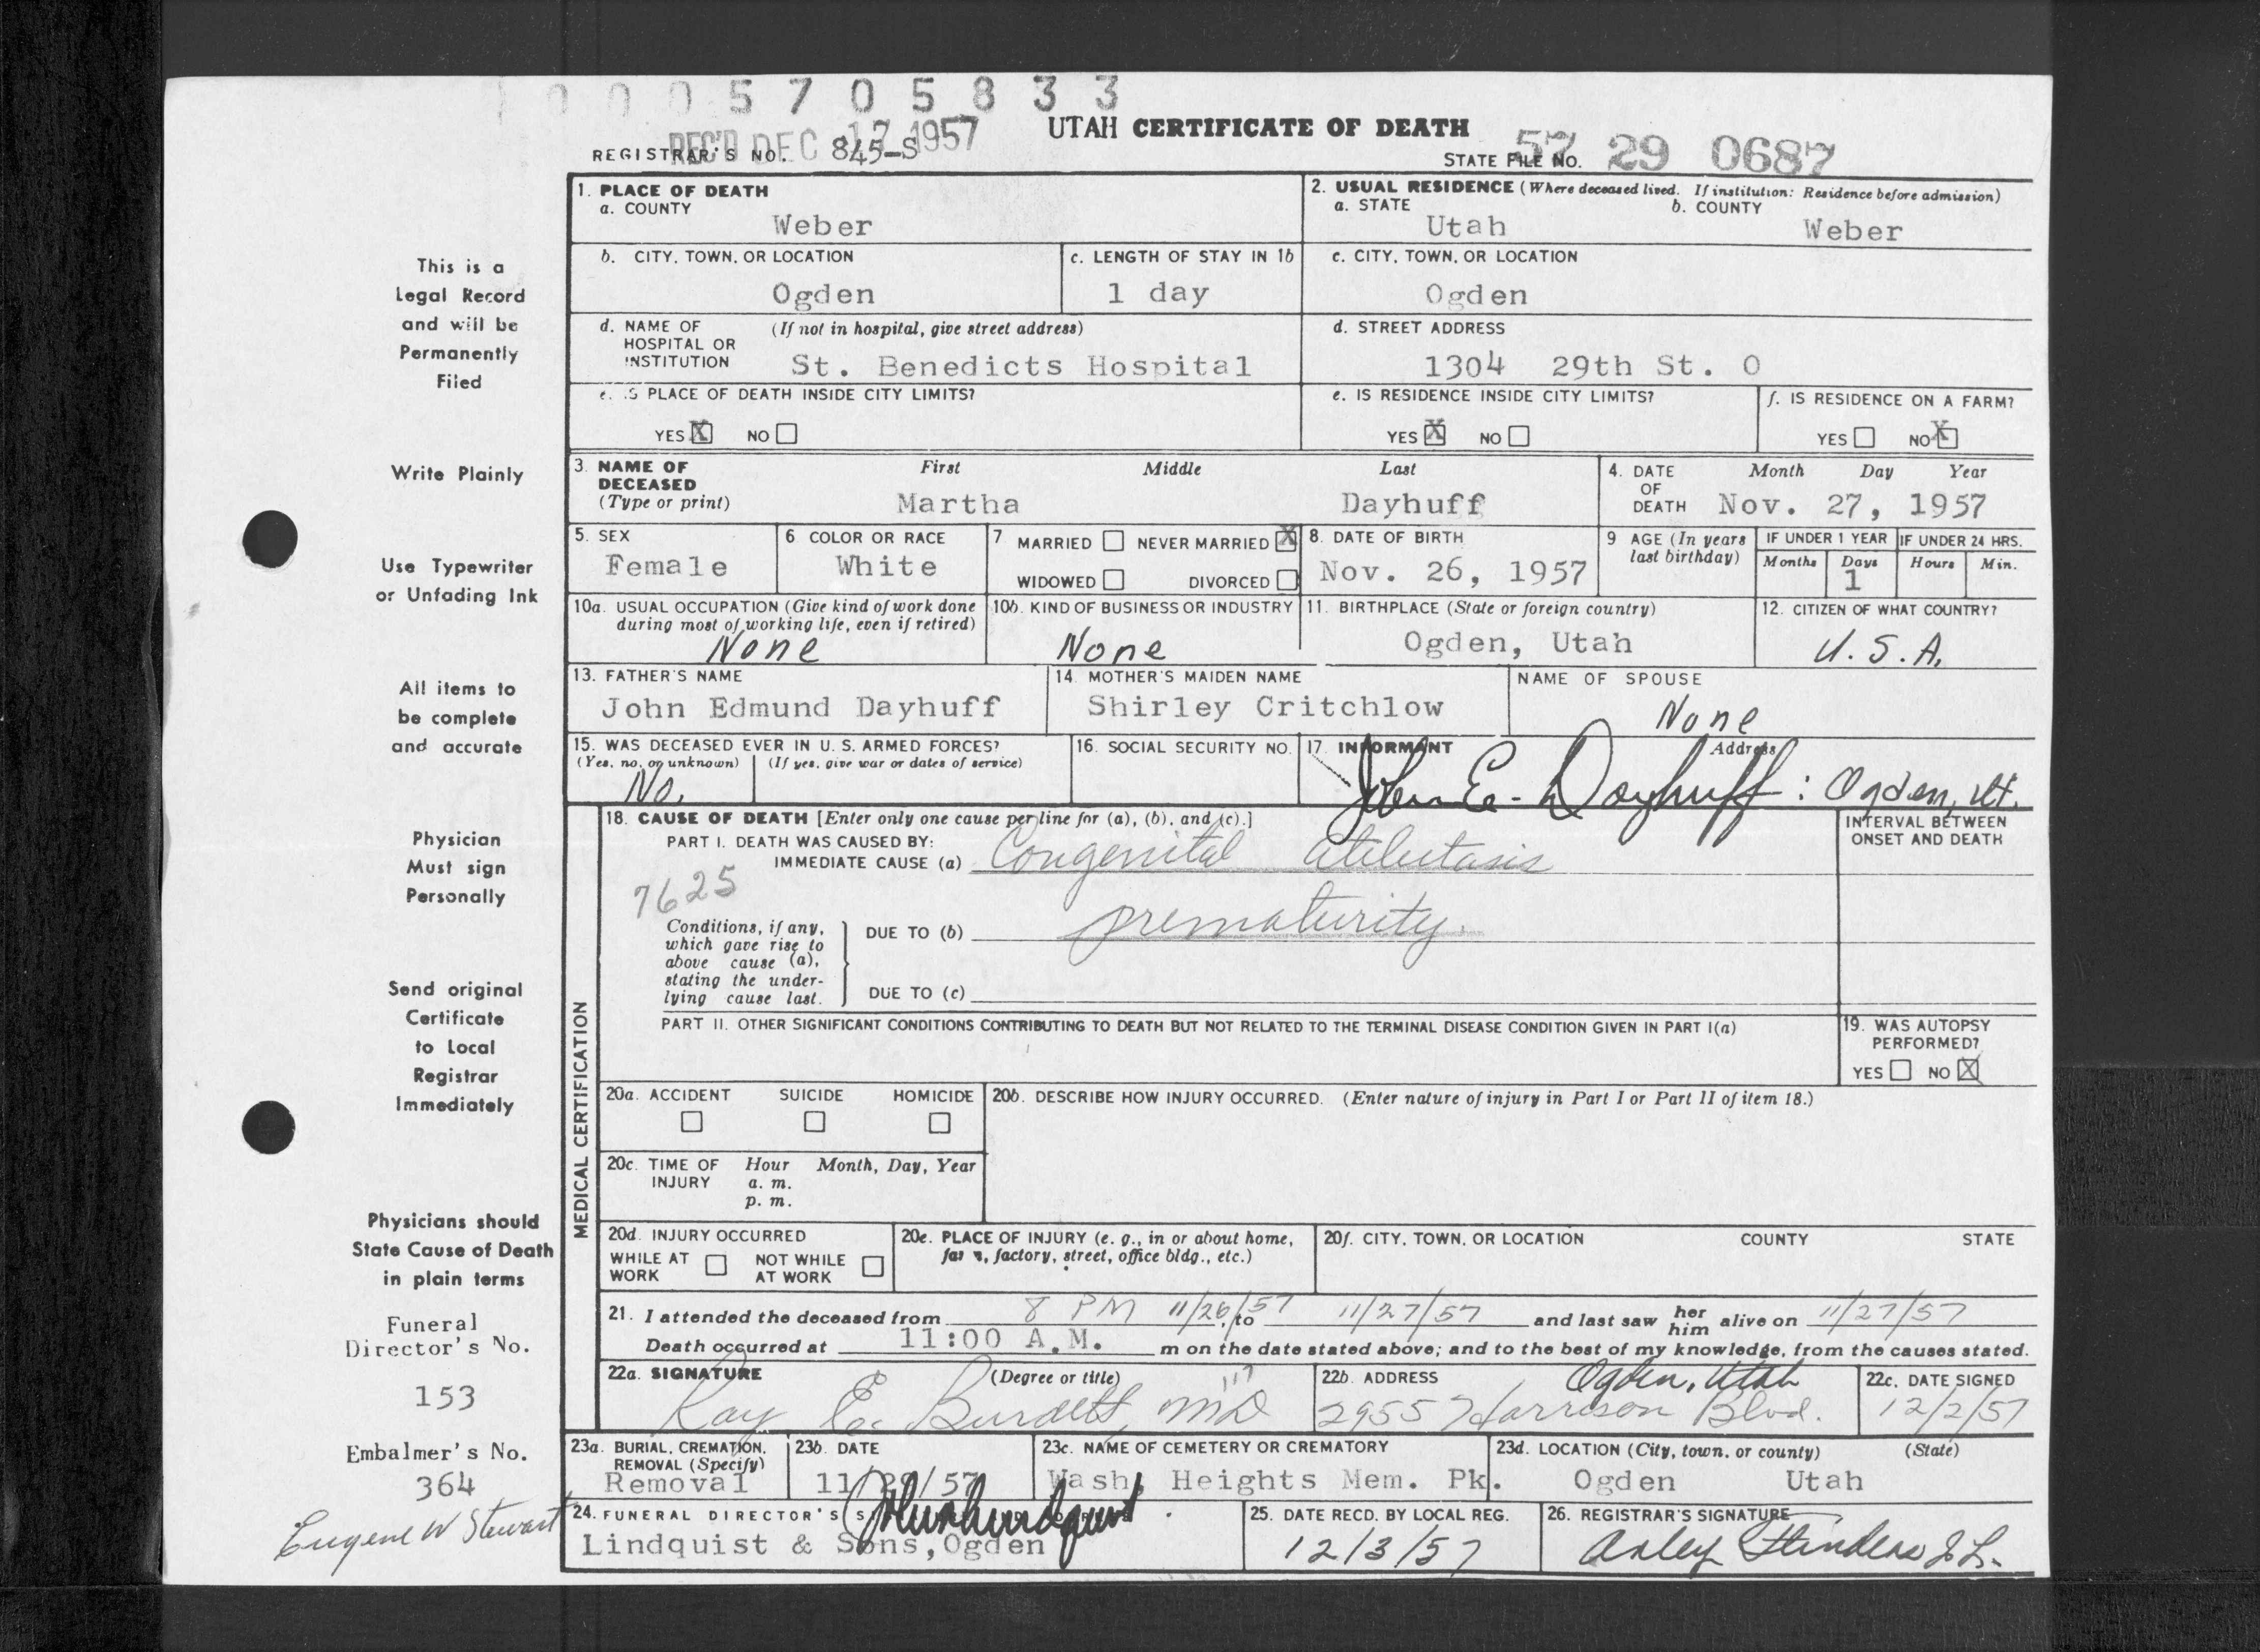 0 0 0 5 7 0 5 8 3 3
REC'D DEC 17 1957
UTAH CERTIFICATE OF DEATH
REGISTRAR'S NO. 845-S
STATE FILE NO. 57 29 0687
This is a
Legal Record
and will be
Permanently
Filed
Write Plainly
Use Typewriter
or Unfading Ink
All items to
be complete
and accurate
Physician
Must sign
Personally
Send original
Certificate
to Local
Registrar
Immediately
Physicians should
State Cause of Death
in plain terms
Funeral
Director's No.
153
Embalmer's No.
364
Eugene W Stewart
1. PLACE OF DEATH
a. COUNTY
Weber
2. USUAL RESIDENCE (Where deceased lived. If institution: Residence before admission)
a. STATE b. COUNTY
Utah Weber
b. CITY, TOWN, OR LOCATION
Ogden
c. LENGTH OF STAY IN 1b
1 day
c. CITY, TOWN, OR LOCATION
Ogden
d. NAME OF (If not in hospital, give street address)
HOSPITAL OR
INSTITUTION St. Benedicts Hospital
d. STREET ADDRESS
1304 29th St. O
e. IS PLACE OF DEATH INSIDE CITY LIMITS?
YES X NO
e. IS RESIDENCE INSIDE CITY LIMITS?
YES X NO
f. IS RESIDENCE ON A FARM?
YES NO X
3. NAME OF First Middle Last
DECEASED
(Type or print) Martha Dayhuff
4. DATE Month Day Year
OF
DEATH Nov. 27, 1957
5. SEX
Female
6 COLOR OR RACE
White
7 MARRIED NEVER MARRIED X
WIDOWED DIVORCED
8. DATE OF BIRTH
Nov. 26, 1957
9 AGE (In years
last birthday)
IF UNDER 1 YEAR IF UNDER 24 HRS.
Months Days Hours Min.
1
10a. USUAL OCCUPATION (Give kind of work done
during most of working life, even if retired)
None
10b. KIND OF BUSINESS OR INDUSTRY
None
11. BIRTHPLACE (State or foreign country)
Ogden, Utah
12. CITIZEN OF WHAT COUNTRY?
U.S.A.
13. FATHER'S NAME
John Edmund Dayhuff
14. MOTHER'S MAIDEN NAME
Shirley Critchlow
NAME OF SPOUSE
None
15. WAS DECEASED EVER IN U. S. ARMED FORCES?
(Yes, no, or unknown) (If yes, give war or dates of service)
No.
16. SOCIAL SECURITY NO.
17. INFORMANT Address
John E. Dayhuff : Ogden, Ut.
MEDICAL CERTIFICATION
18. CAUSE OF DEATH [Enter only one cause per line for (a), (b), and (c).]
PART I. DEATH WAS CAUSED BY:
IMMEDIATE CAUSE (a) Congenital atelectasis
INTERVAL BETWEEN
ONSET AND DEATH
7625
Conditions, if any,
which gave rise to
above cause (a),
stating the under-
lying cause last.
DUE TO (b) prematurity.
DUE TO (c)
PART II. OTHER SIGNIFICANT CONDITIONS CONTRIBUTING TO DEATH BUT NOT RELATED TO THE TERMINAL DISEASE CONDITION GIVEN IN PART I(a)
19. WAS AUTOPSY
PERFORMED?
YES NO X
20a. ACCIDENT SUICIDE HOMICIDE
20b. DESCRIBE HOW INJURY OCCURRED. (Enter nature of injury in Part I or Part II of item 18.)
20c. TIME OF Hour Month, Day, Year
INJURY a. m.
p. m.
20d. INJURY OCCURRED
WHILE AT NOT WHILE
WORK AT WORK
20e. PLACE OF INJURY (e. g., in or about home,
farm, factory, street, office bldg., etc.)
20f. CITY, TOWN, OR LOCATION COUNTY STATE
21. I attended the deceased from 8 PM 11/26/57, to 11/27/57 and last saw her him alive on 11/27/57
Death occurred at 11:00 A.M. m on the date stated above; and to the best of my knowledge, from the causes stated.
22a. SIGNATURE (Degree or title)
Ray E. Burdett, MD
22b. ADDRESS Ogden, Utah
2955 Harrison Blvd.
22c. DATE SIGNED
12/2/57
23a. BURIAL, CREMATION,
REMOVAL (Specify)
Removal
23b. DATE
11/29/57
23c. NAME OF CEMETERY OR CREMATORY
Wash, Heights Mem. Pk.
23d. LOCATION (City, town, or county) (State)
Ogden Utah
24. FUNERAL DIRECTOR'S
Lindquist & Sons, Ogden
25. DATE RECD. BY LOCAL REG.
12/3/57
26. REGISTRAR'S SIGNATURE